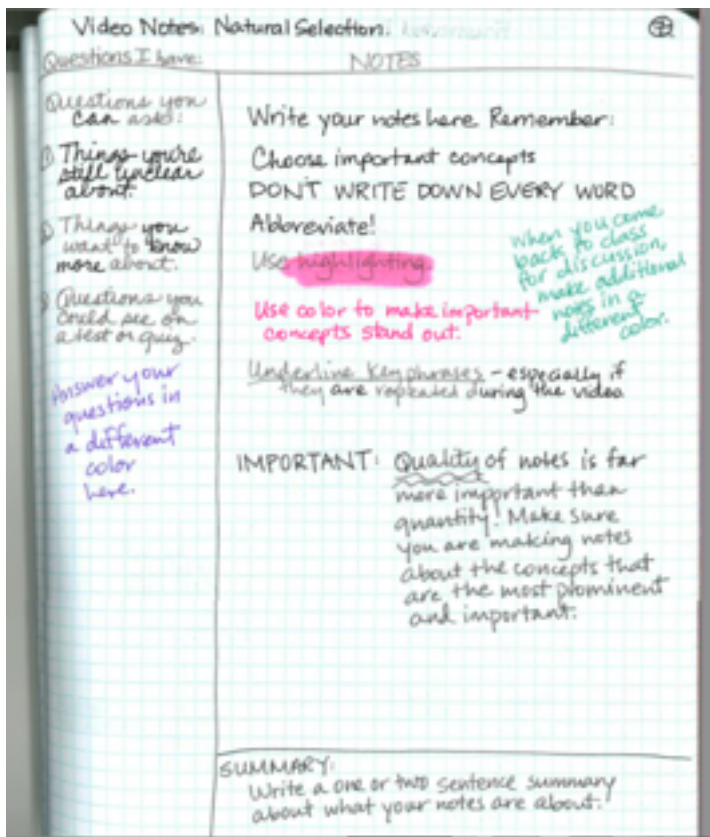 Video Notes: Natural Selection.
Questions I have:
NOTES
Questions you
can ask:
Things you're
still unclear
about.
Things you
want to know
more about.
Questions you
could see on
a test or quiz.
Answer your
questions in
a different
color
here.
Write your notes here. Remember:
Choose important concepts
DON'T WRITE DOWN EVERY WORD
Abbreviate!
Use highlighting.
Use color to make important
concepts stand out.
When you come
back to class
for discussion,
make additional
notes in a
different
color.
Underline key phrases - especially if
they are repeated during the video
IMPORTANT: Quality of notes is far
more important than
quantity! Make sure
you are making notes
about the concepts that
are the most prominent
and important.
SUMMARY:
Write a one or two sentence summary
about what your notes are about.